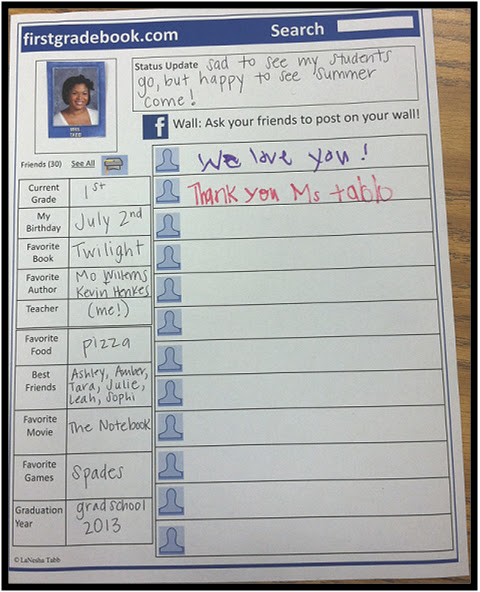 firstgradebook.com
Search
Status Update sad to see my students
go, but happy to see summer
come!
MISS
TABB
f Wall: Ask your friends to post on your wall!
Friends (30) See All
We love you!
Thank you Ms tabb
Current
Grade
1st
My
Birthday
July 2nd
Favorite
Book
Twilight
Favorite
Author
Mo Willems
+
Kevin Henkes
Teacher
(me!)
Favorite
Food
pizza
Best
Friends
Ashley, Amber,
Tara, Julie,
Leah, Sophi
Favorite
Movie
The Notebook
Favorite
Games
Spades
Graduation
Year
grad school
2013
© LaNesha Tabb